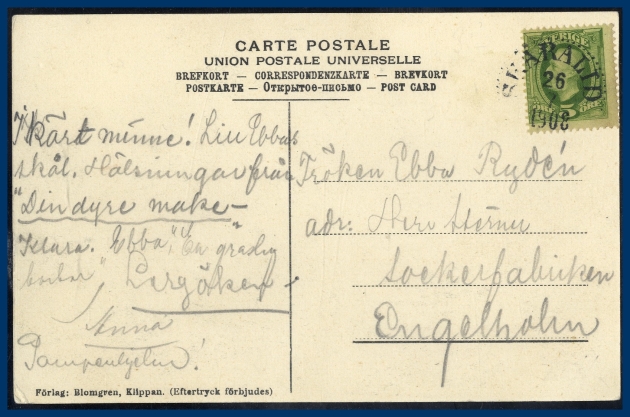 CARTE POSTALE
UNION POSTALE UNIVERSELLE
BREFKORT — CORRESPONDENZKARTE — BREVKORT
POSTKARTE — Открытое-письмо — POST CARD
SVERIGE
SKÄRALID
26
1908
ÖRE
I kärt minne! Liu Ebbas
skål. Hälsningar från
"Din dyre make—
Klara. Ebba", "En gradig
Lergöken—
Anna
Fröken Ebba Rydén
adr: Herr
Sockerfabriken
Engelholm
Förlag: Blomgren, Klippan. (Eftertryck förbjudes)